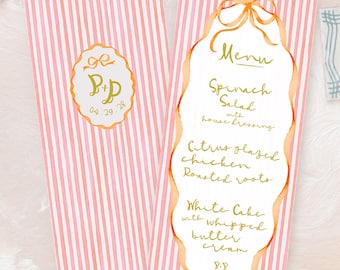 P+P
04.29.28
Menu
Spinach
Salad
with
house dressing
Citrus glazed
chicken
Roasted roots
White Cake
with whipped
butter
cream
P.P